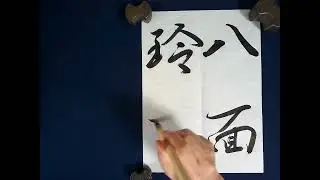 八面
玲